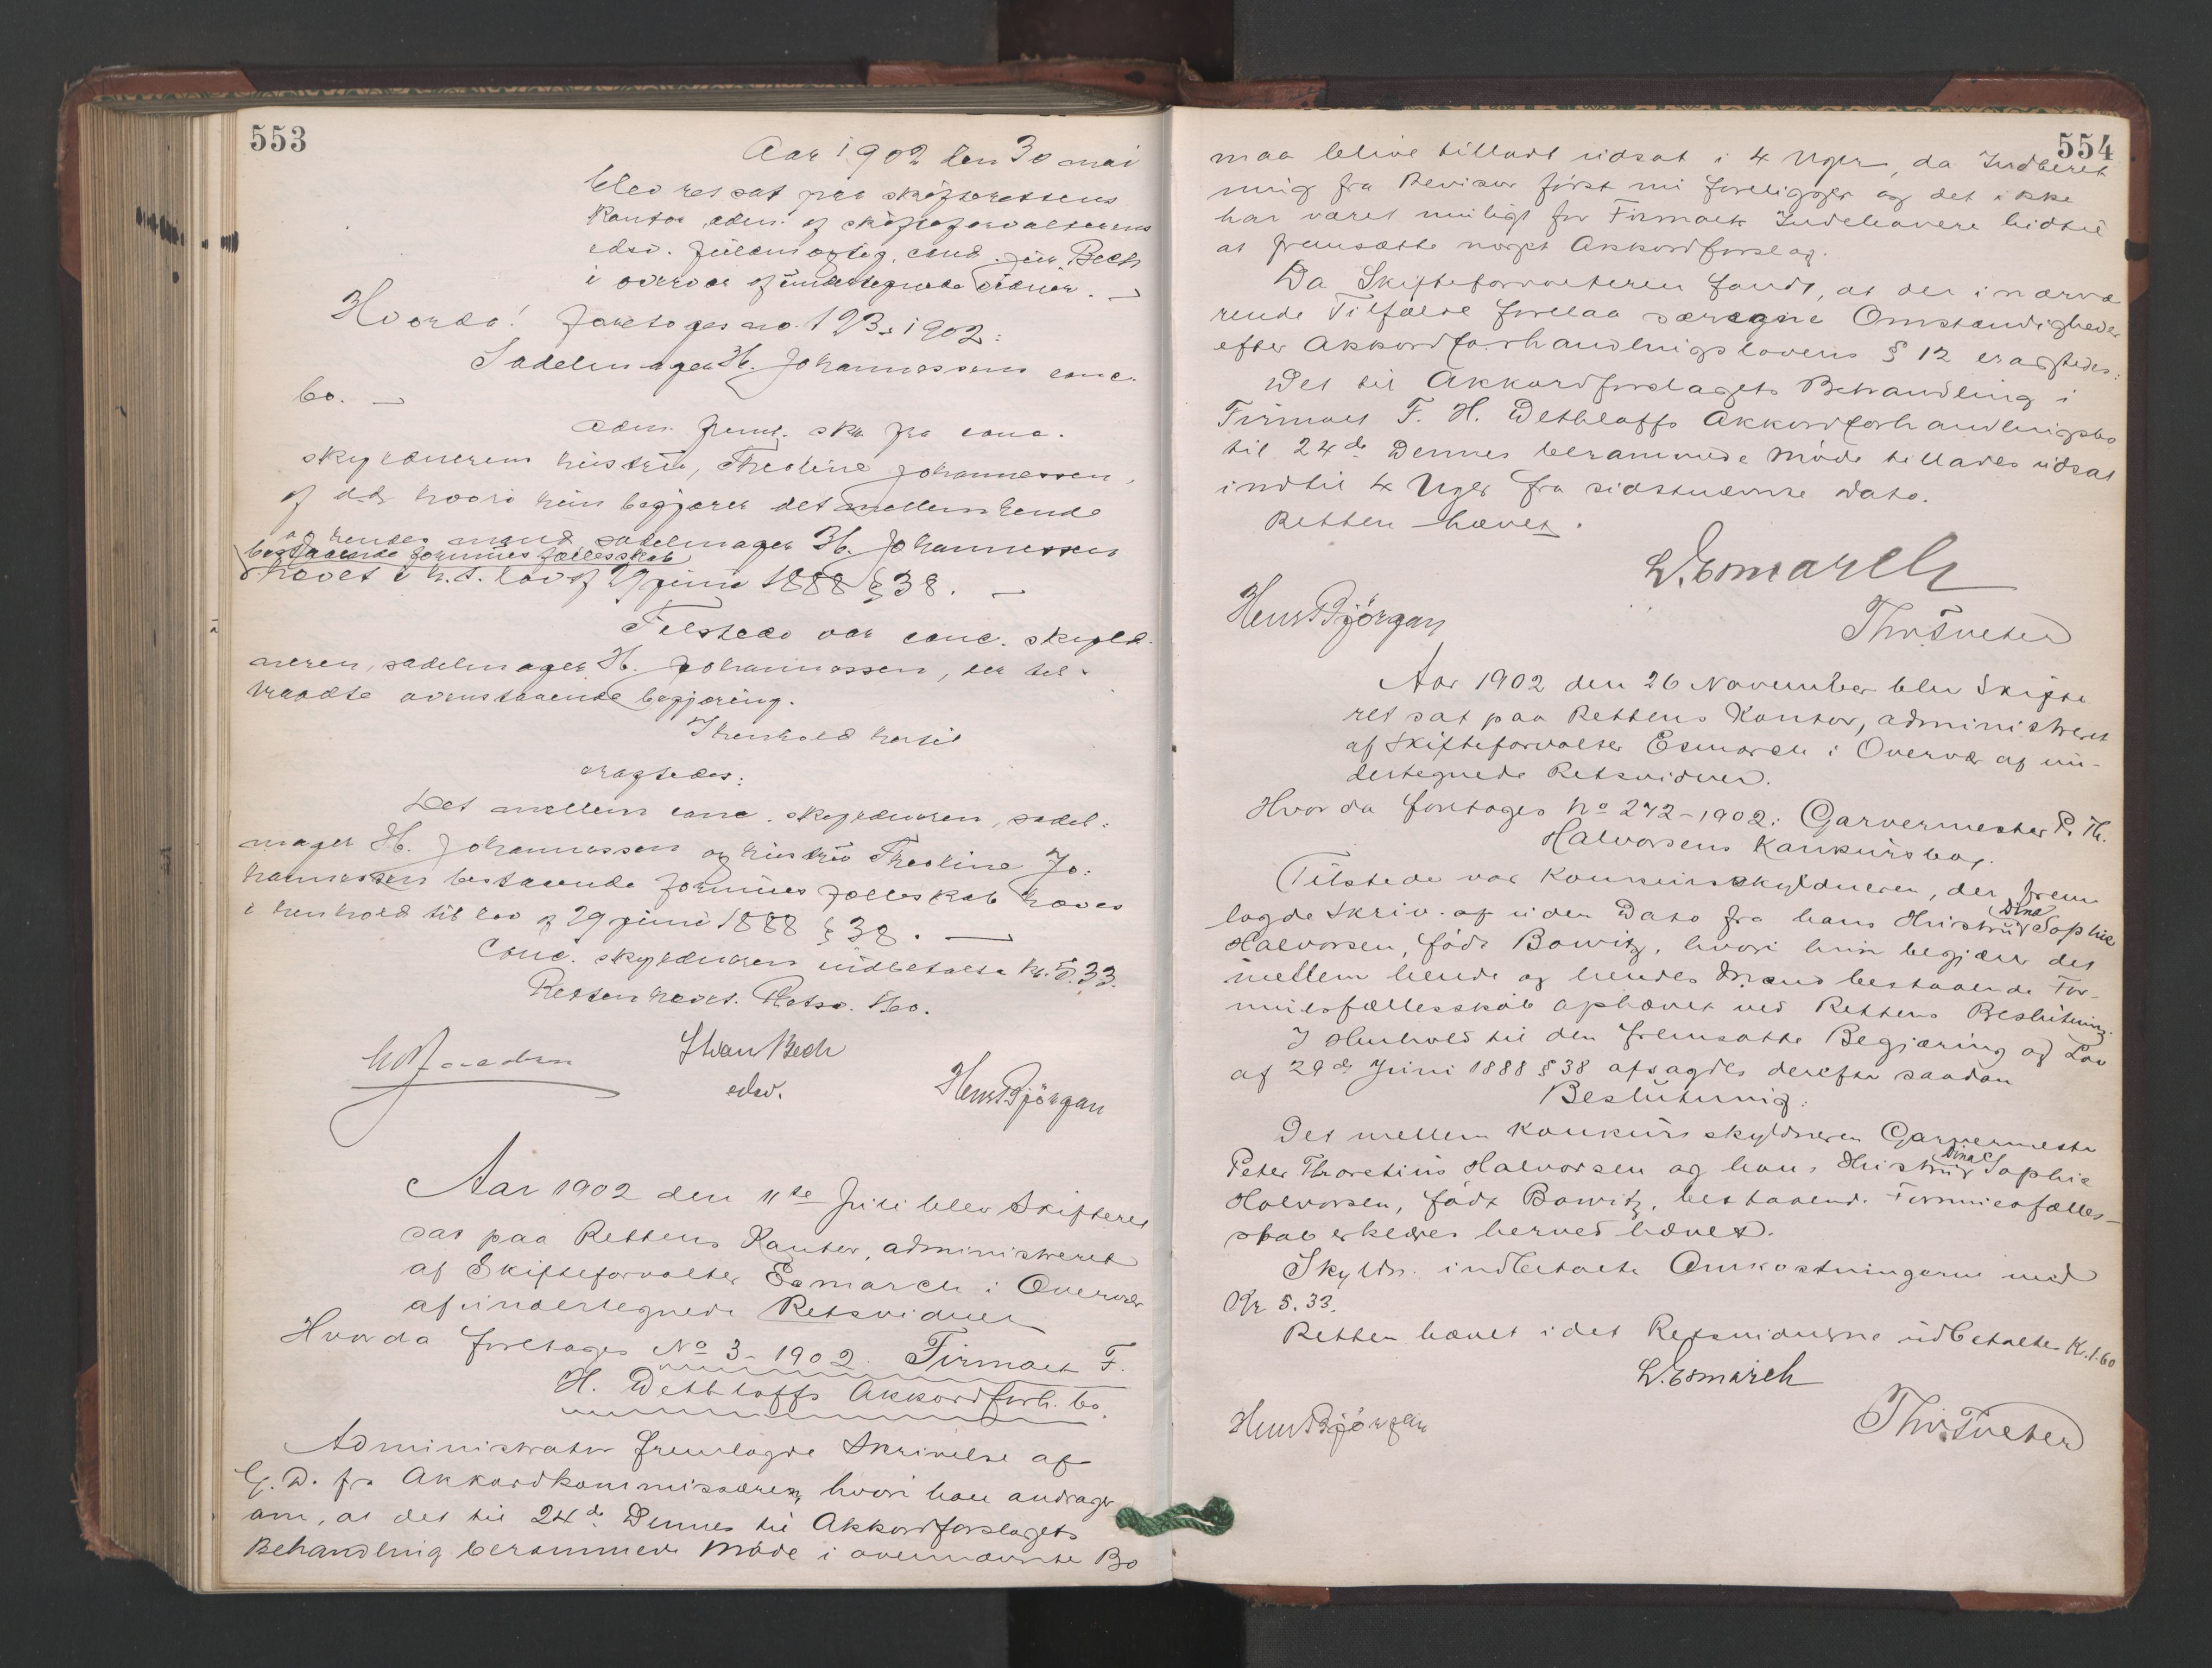 553
Aar 1902 den 30 mai
blev ret sat paa skifterettens
Kontor adm. af skifteforvalterens
edsv. fuldmægtig, cand. jur. Bech
i overvær af undertegnede vidner. —
Hvorda! foretoges no. 193-1902:
Sadelmager H. Johannessens conc.
bo. —
Adm. freml. skr. fra conc.
skyldnerens hustru, Theoline Johannessen,
af d.d. hvori hun begjærer det mellem hende
og hendes mand sadelmager H. Johannessen
bestaaende formues fællesskab
hævet i h. t. lov af 29 juni 1888 § 38. —
Tilstede var conc. skyld-
neren, sadelmager H. Johannessen, der til-
traadte ovenstaaende begjæring.
I henhold hertil
eragtedes:
Det mellem conc. skyldneren, sadel-
mager H. Johannessen og hustru Theoline Jo-
hannessen bestaaende formues fælleskab hæves
i henhold til lov af 29 juni 1888 § 38. —
Conc. skyldneren indbetalte kr. 5.33.
Retten hævet. Retsv. 1.60.
Stran Bech
edsv.
Hens Bjørgan
Aar 1902 den 11te Juli blev Skifteret
sat paa Rettens Kontor, administreret
af Skifteforvalter Esmarch i Overvær
af undertegnede Retsvidner
Hvorda foretoges No 3-1902. Firmaet F.
H. Dethloffs Akkordforh. bo.
Administrator fremlagde Skrivelse af
G. D. fra Akkordkommissæren, hvori han andrager
om, at det til 24de Dennes til Akkordforslagets
Behandling berammede Møde i ovennævnte Bo
554
maa blive tilladt udsat i 4 Uger, da Indberet
ning fra Revisor først nu foreligger og det ikke
har været muligt for Firmaets Indehavere hidtil
at fremsætte noget Akkordforslag.
Da Skifteforvalteren fandt, at der i nærvæ
rende Tilfælde forelaa særegne Omstændigheder
efter Akkordforhandlingslovens § 12 eragtedes:
Det til Akkordforslagets Behandling i
Firmaet F. H. Dethloffs Akkordforhandlingsbo
til 24de Dennes berammede Møde tillades udsat
indtil 4 Uger fra sidstnævnte Dato.
Retten hævet.
L. Esmarch
Hens Bjørgan
Thv. Tveter
Aar 1902 den 26 November blev Skifte
ret sat paa Rettens Kontor, administreret
af Skifteforvalter Esmarch i Overvær af un-
dertegnede Retsvidner.
Hvorda foretoges No 242-1902: Garvermester P. Th.
Halvorsens Konkursbo.
Tilstede var Konkursskyldneren, der frem
lagde Skriv. af uden Dato fra hans Hustru Dina Sophie
Halvorsen, født Bowitz, hvori hun begjærer det
mellem hende og hendes Mand bestaaende For-
muesfællesskab ophævet ved Rettens Beslutning.
I Henhold til den fremsatte Begjæring og Lov
af 29de Juni 1888 § 38 afsagdes derefter saadan
Beslutning:
Det mellem Konkursskyldneren Garvermester
Peter Thoretius Halvorsen og hans Hustru Dina Sophie
Halvorsen, født Bowitz, bestaaende Formuesfælles-
skab erklæres herved hævet.
Skyldn. indbetalte Omkostningerne med
Kr 5.33.
Retten hævet idet Retsvidnerne udbetaltes K. 1.60
L. Esmarch
Hens Bjørgan
Thv. Tveter